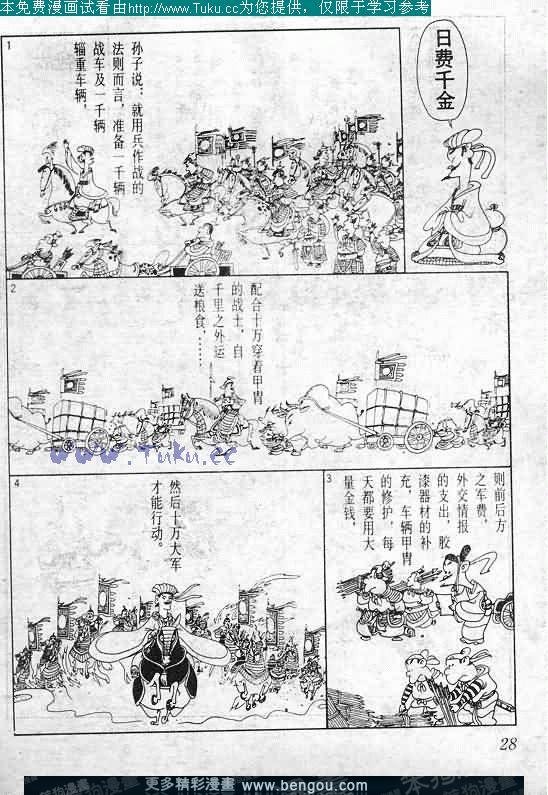 本免费漫画试看由http://www.Tuku.cc为您提供，仅限于学习参考
日费千金
1
孙子说：就用兵作战的
法则而言，准备一千辆
战车及一千辆
辎重车辆，
2
配合十万穿着甲胄
的战士，自
千里之外运
送粮食，……
www.Tuku.cc
3
则前后方
之军费，
外交情报
的支出，胶
漆器材的补
充，车辆甲胄
的修护，每
天都要用大
量金钱，
4
然后十万大军
才能行动。
28
更多精彩漫畫 www.bengou.com